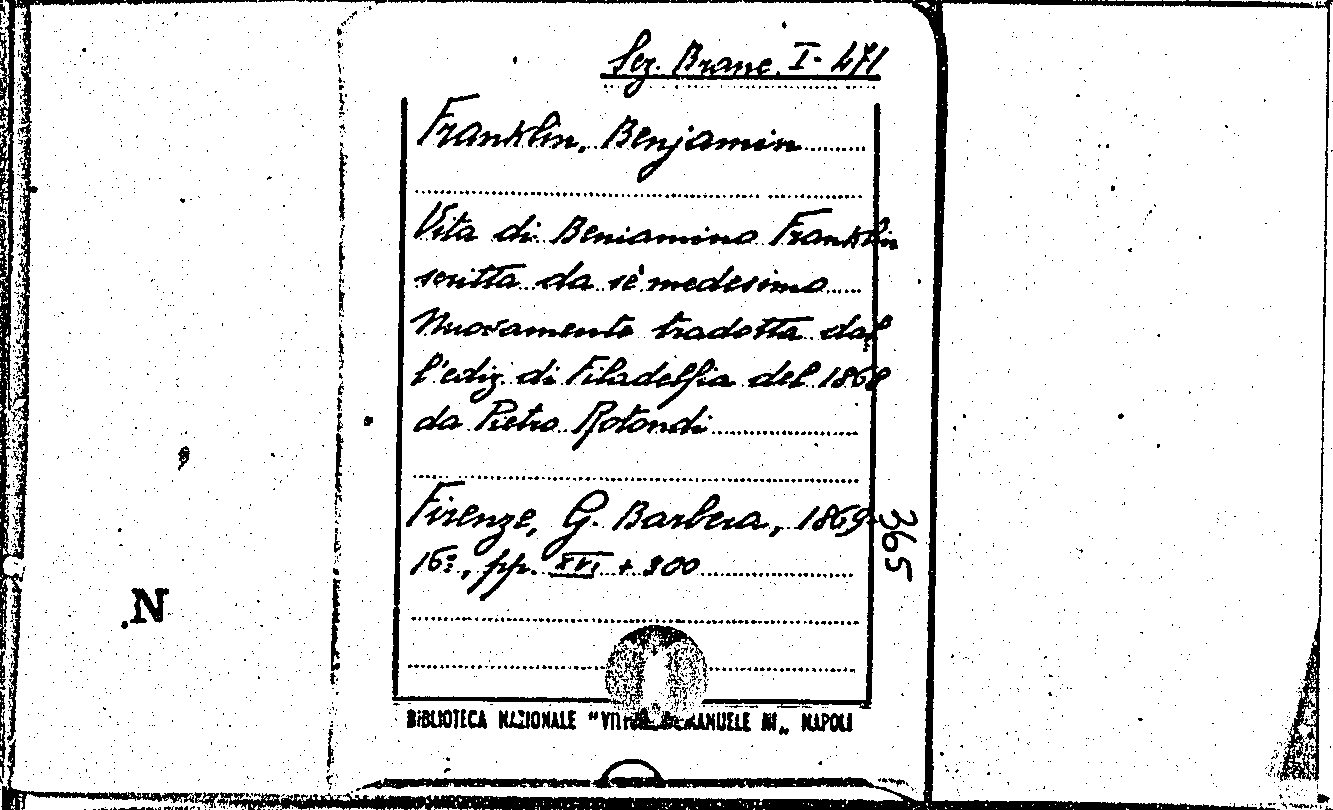 Sez. Branc. I - 471
Franklin, Benjamin
Vita di Beniamino Franklin
scritta da sè medesimo
Nuovamente tradotta dal
l'ediz. di Filadelfia del 1868
da Pietro Rotondi
Firenze, G. Barbera, 1869
16º, pp. XVI + 300
365
N
BIBLIOTECA NAZIONALE "VITTORIO EMANUELE III„ NAPOLI